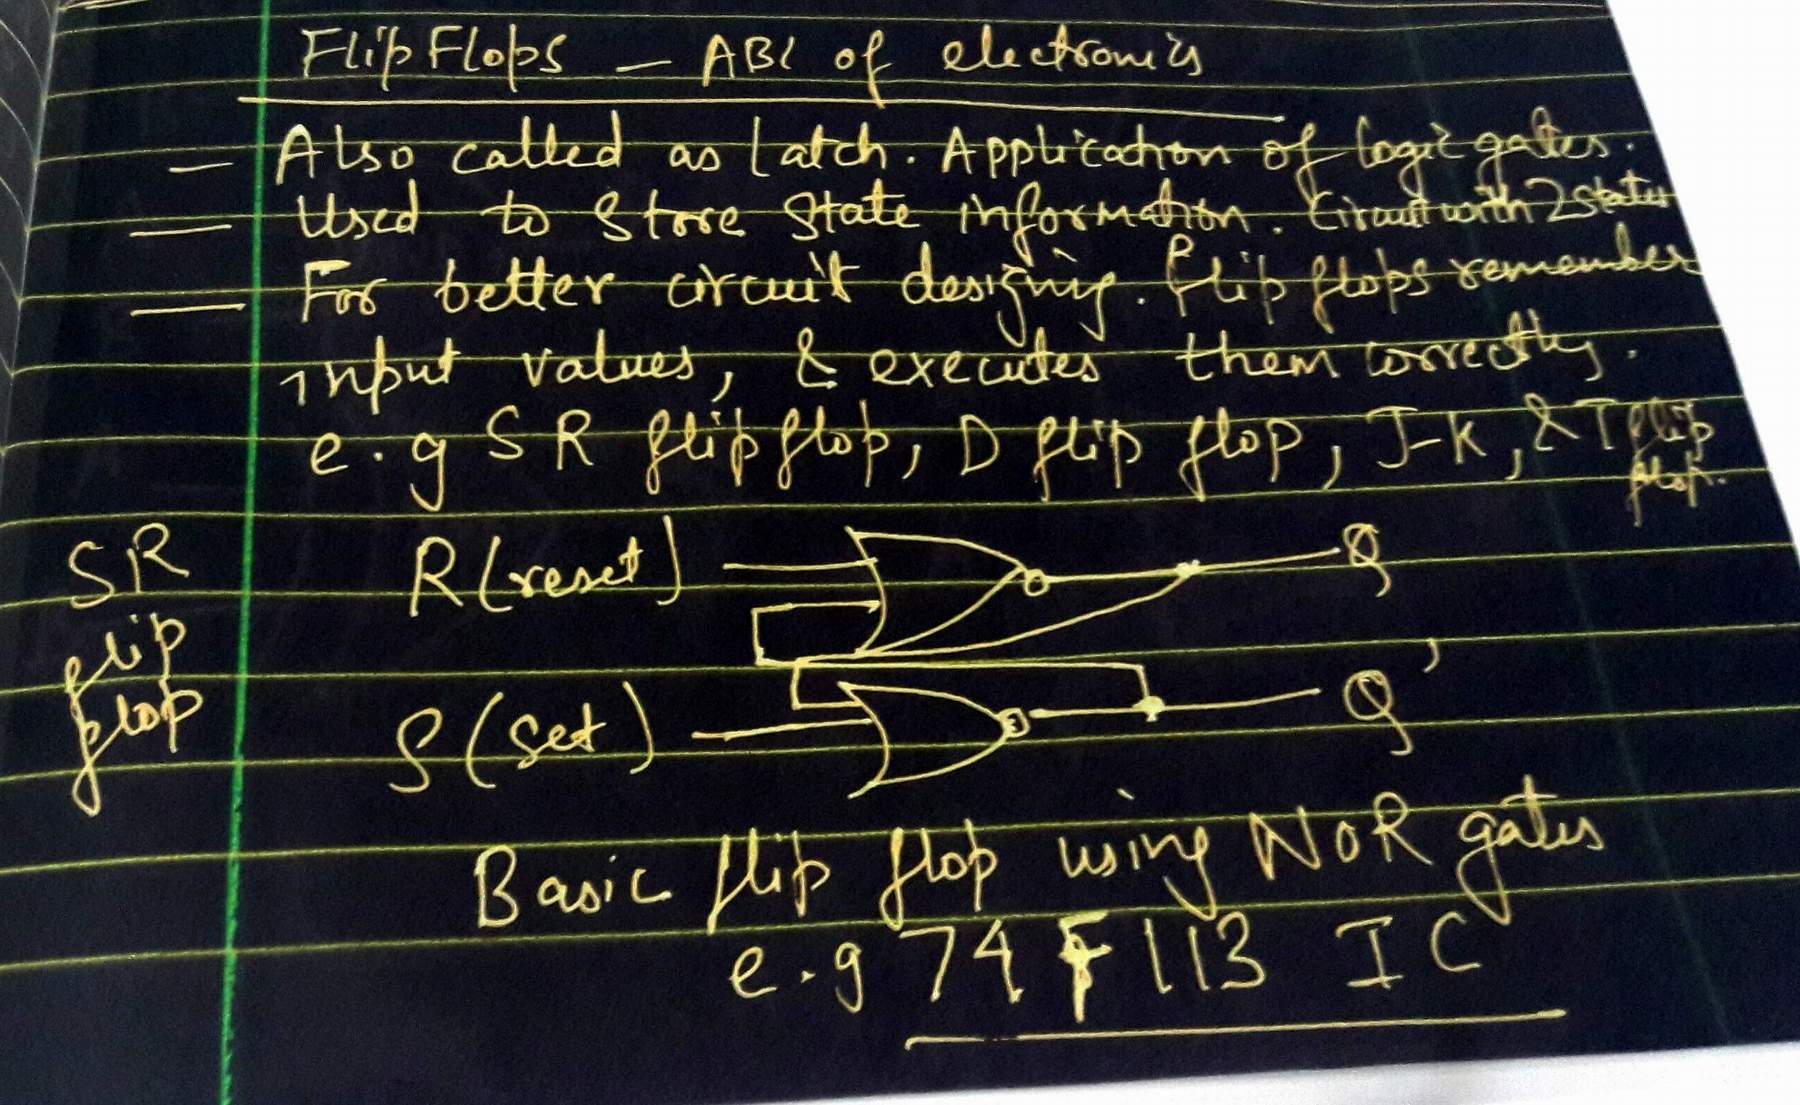 FlipFlops — ABC of electronics
— Also called as Latch. Application of logic gates.
— Used to Store State information. Circuit with 2 states
— For better circuit designing. Flip flops remember
input values, & executes them correctly.
e.g SR flipflop, D flip flop, J-K, & T flip
flop.
SR
flip
flop
R (reset)
Q
S (Set)
Q'
Basic flip flop using NOR gates
e.g 74F113 IC